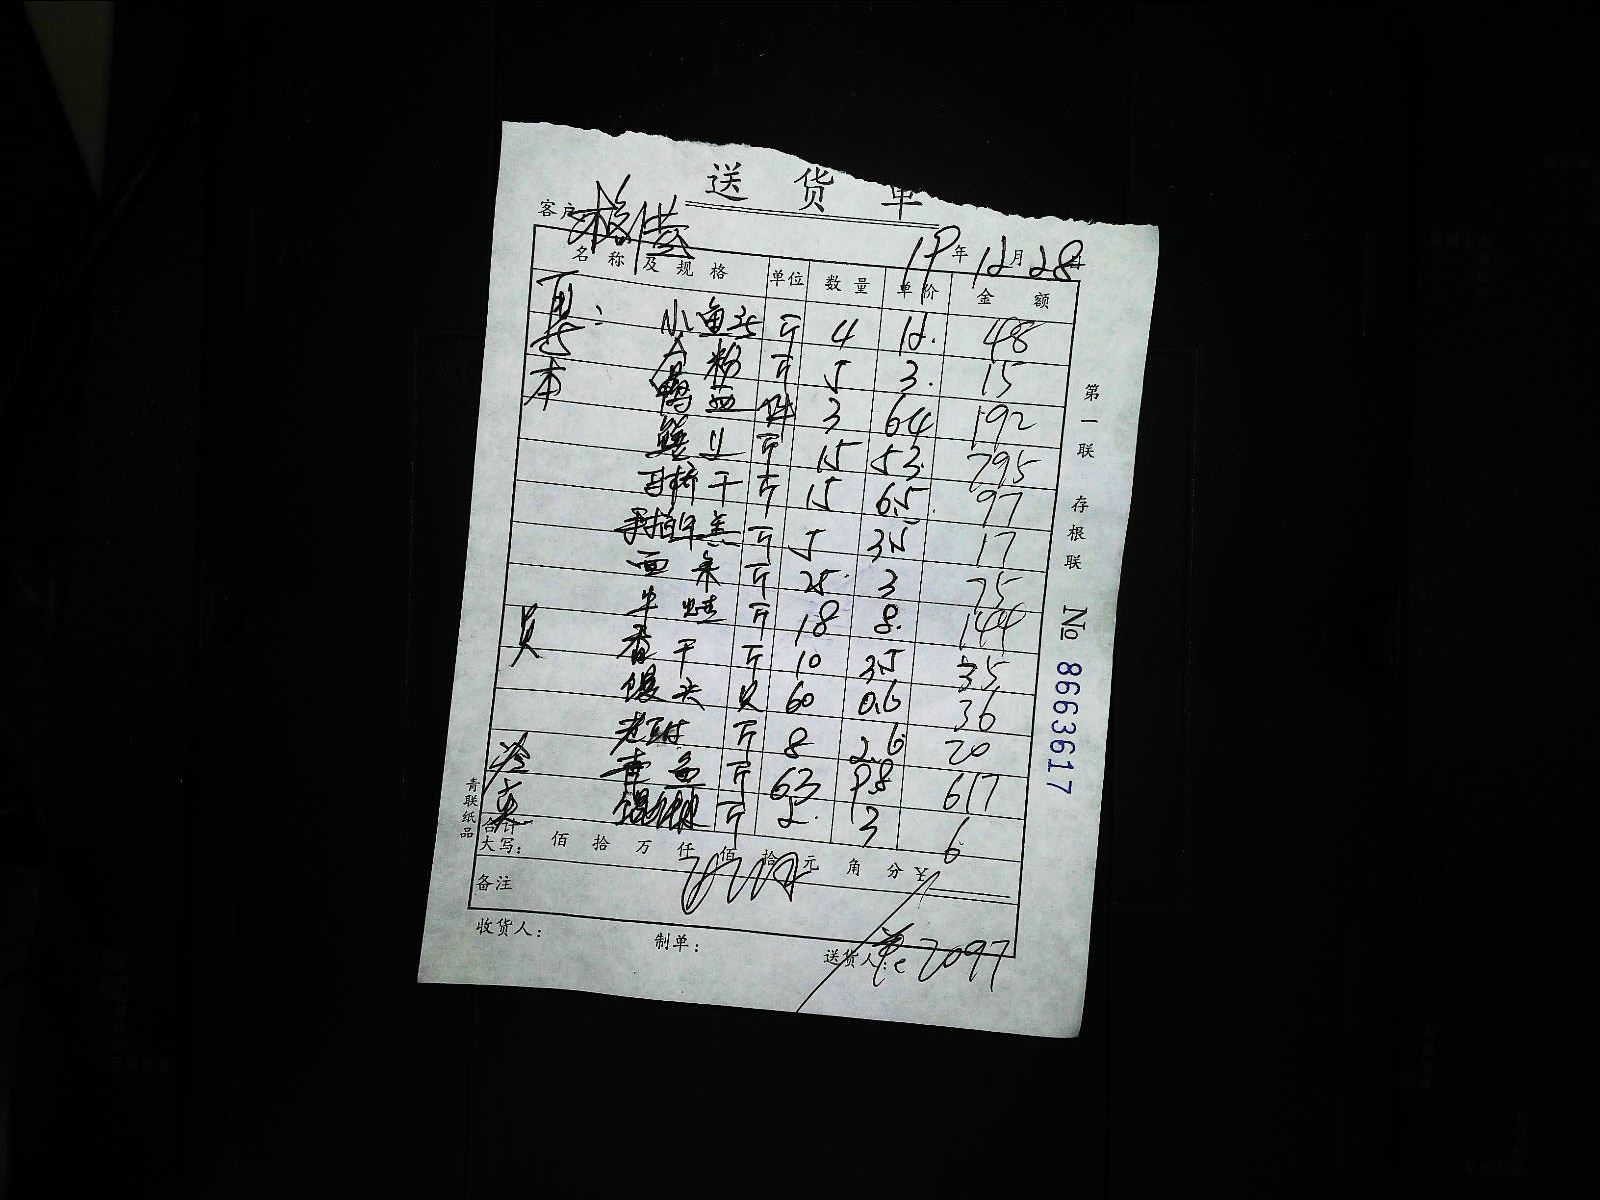 送货单
客户
19年12月28日
名称及规格 单位 数量 单价 金额
小鱼 斤 4 12. 48
粉 斤 5 3. 15
鸭血 件 3 64 192
斤 15 53. 795
干 斤 15 6.5 97
斤 5 3.5 17
面条 斤 25 3 75
牛蛙 斤 18 8. 144
香干 斤 10 3.5 35
馒头 只 60 0.6 36
老豆付 斤 8 2.6 20
青鱼 斤 63 9.8 617
斤 2. 3 6
合计
大写： 佰拾万仟佰拾元角分￥
备注
收货人： 制单： 送货人：
2097
第一联 存根联
№ 8663617
青联纸品